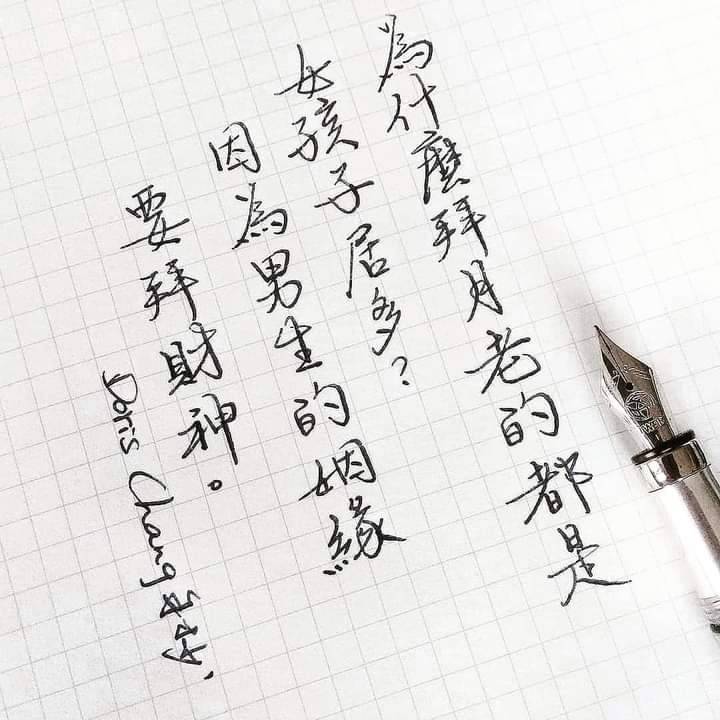 為什麼拜月老的都是
女孩子居多?
因為男生的姻緣
要拜財神。
Doris Chang